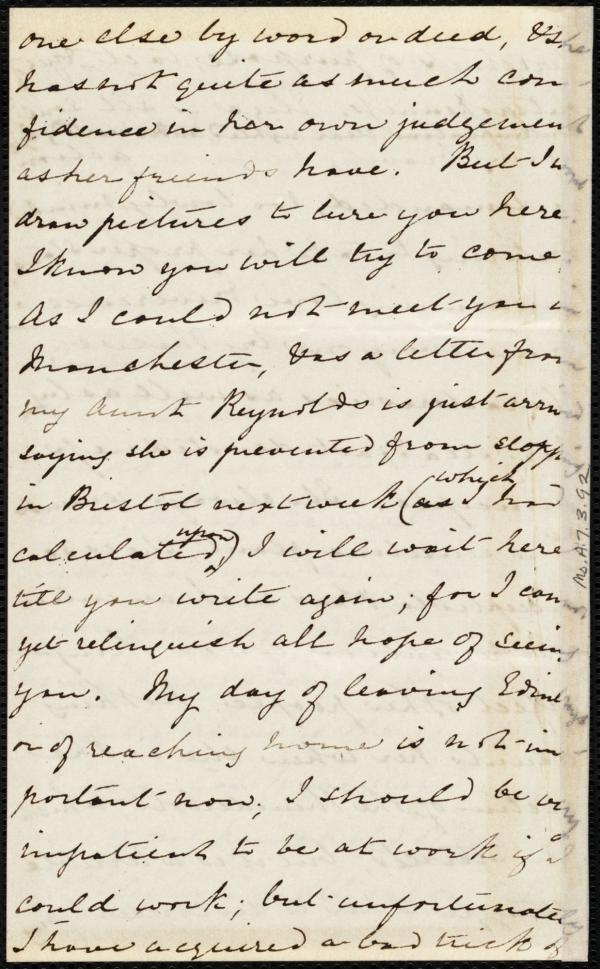 one else by word or deed, & she
has not quite as much con
fidence in her own judgement
as her friends have. But I
draw pictures to lure you here
I know you will try to come
As I could not meet you in
Manchester, & as a letter from
my Aunt Reynolds is just arri
saying she is prevented from stopp
in Bristol next week (as which I had
calculated upon) I will wait here
till you write again; for I can
yet relinquish all hope of seeing
you. My day of leaving Edinb
or of reaching home is not im
portant now; I should be very
impatient to be at work if I
could work; but unfortunately
I have acquired a bad trick of
Ms. A. 7. 3. 92